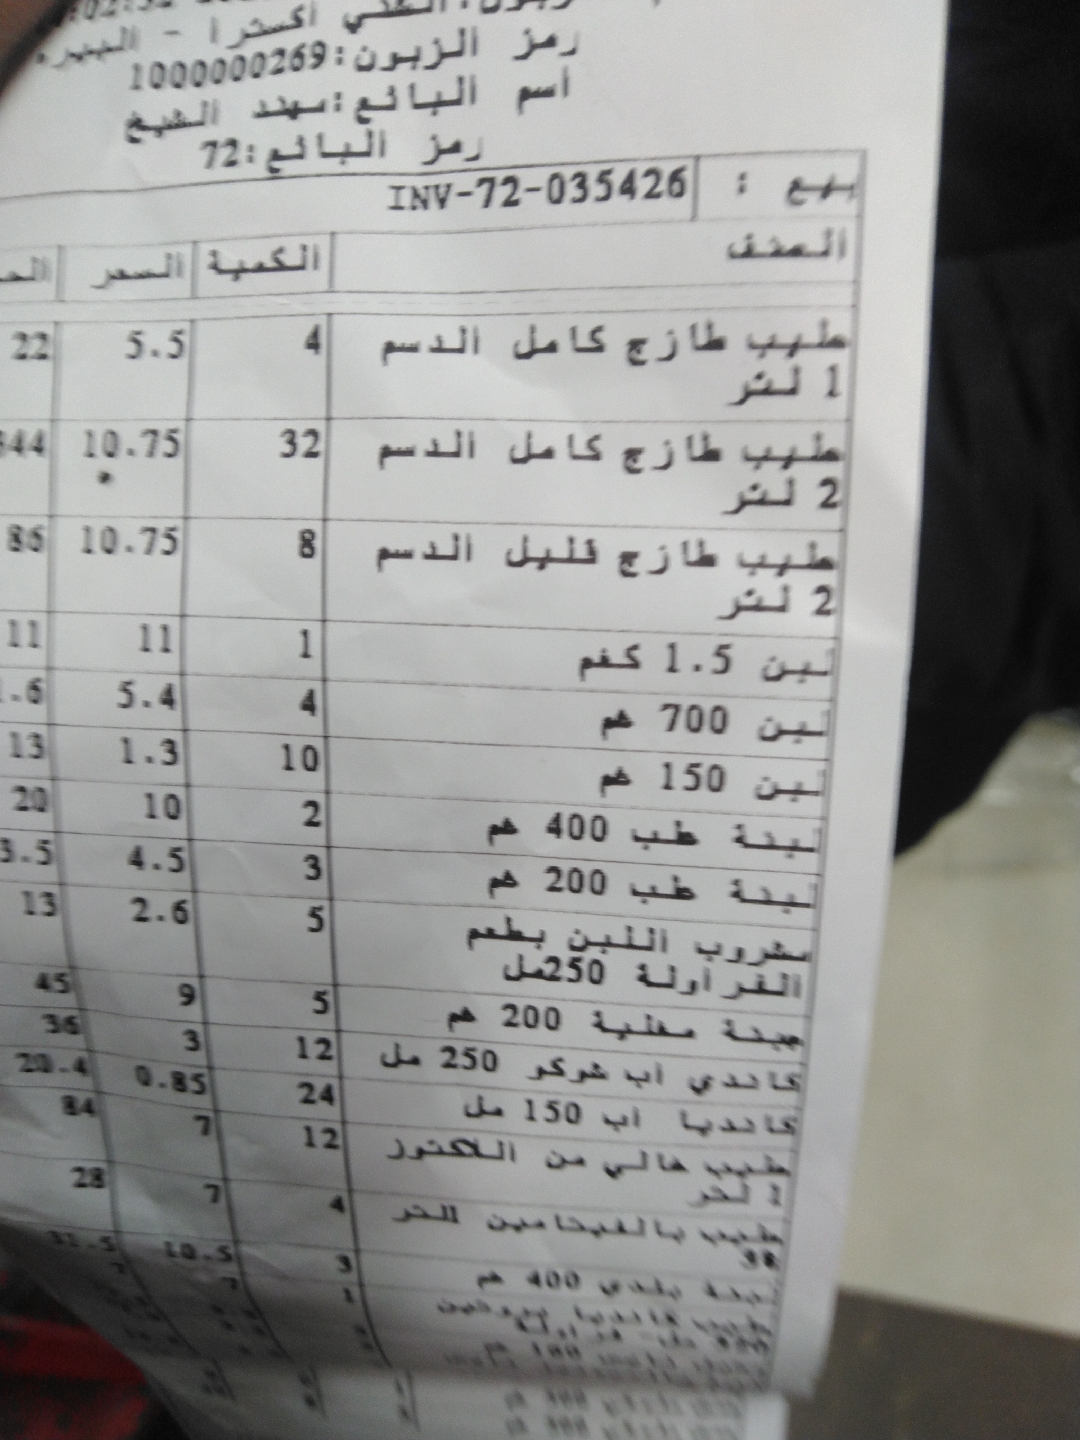 أكسترا - البيره
رمز الزبون:1000000269
أسم البائع:مهند الشيخ
رمز البائع:72
بيع : INV-72-035426
الصنف الكمية السعر
حليب طازج كامل الدسم 4 5.5 22
1 لتر
حليب طازج كامل الدسم 32 10.75 344
2 لتر
حليب طازج قليل الدسم 8 10.75 86
2 لتر
لبن 1.5 كغم 1 11 11
لبن 700 غم 4 5.4 .6
لبن 150 غم 10 1.3 13
لبنة طب 400 غم 2 10 20
لبنة طب 200 غم 3 4.5 3.5
مشروب اللبن بطعم 5 2.6 13
الفراولة 250مل
جبنة مغلية 200 غم 5 9 45
كاندي اب شوكو 250 مل 12 3 36
كانديا اب 150 مل 24 0.85 20.4
حليب خالي من اللاكتوز 12 7 84
1 لتر
حليب بالفيتامين 4 7 28
لبنة بلدي 400 غم 3 10.5 31.5
حليب كانديا بروتين 1 7 7